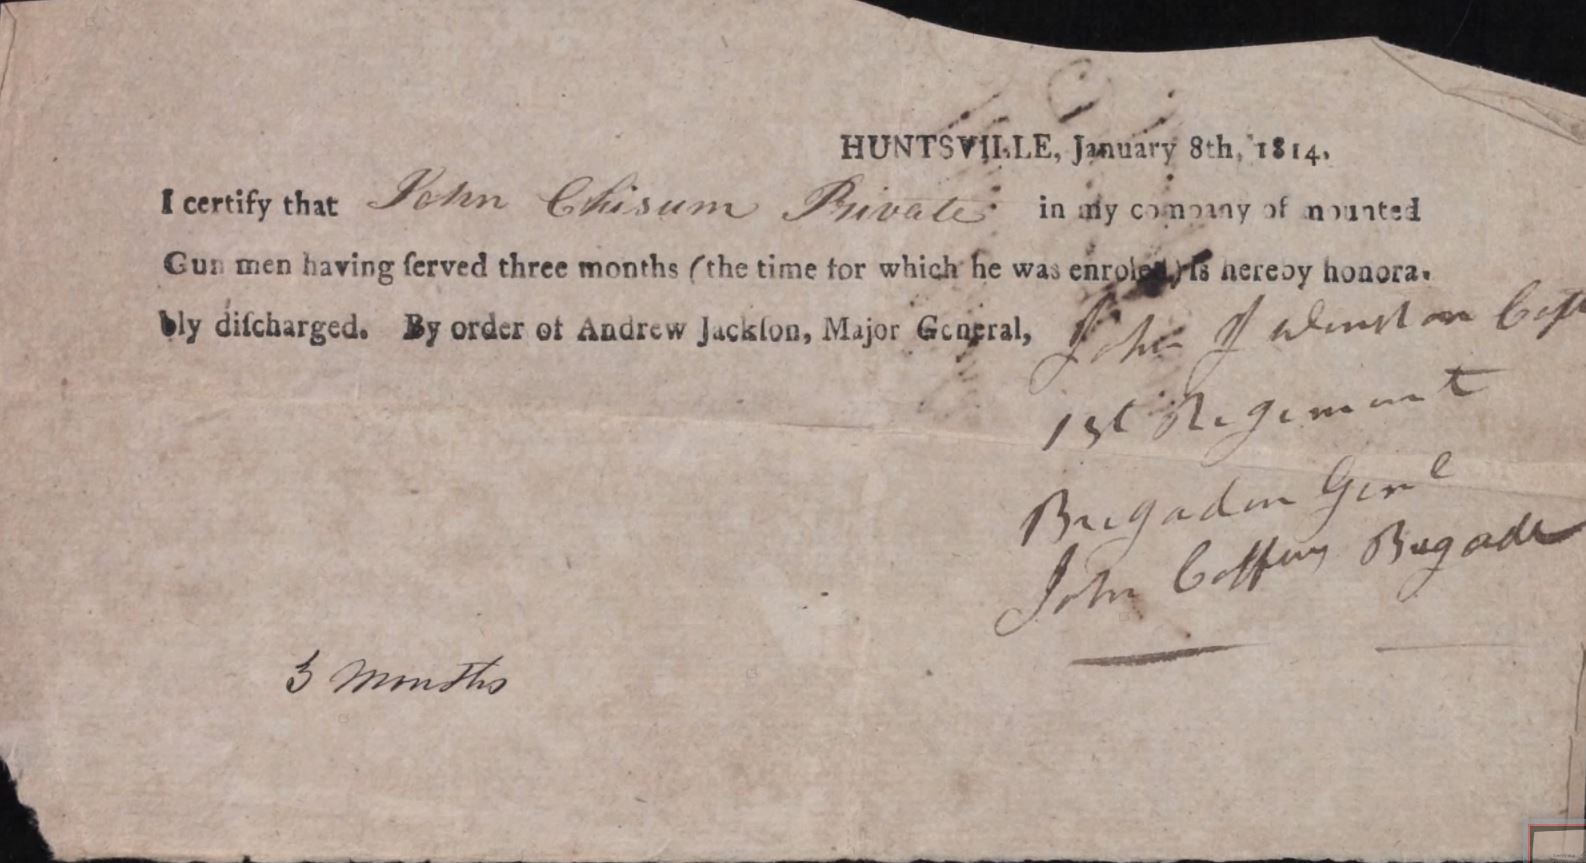 HUNTSVILLE, January 8th, 1814.
I certify that John Chisum Private in my company of mounted
Gun men having ſerved three months (the time for which he was enroled) is hereby honora-
bly diſcharged. By order of Andrew Jackſon, Major General,
John J Winston Capt
1st Regiment
Brigadier Genl
John Coffees Brigade
3 Months